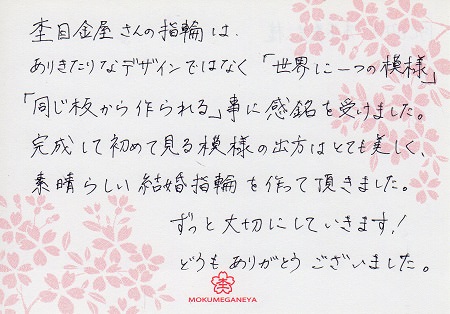 杢目金屋さんの指輪は、
ありきたりなデザインではなく「世界に一つの模様」
「同じ板から作られる」事に感銘を受けました。
完成して初めて見る模様の出方はとても美しく、
素晴らしい結婚指輪を作って頂きました。
ずっと大切にしていきます！
どうもありがとうございました。
MOKUMEGANEYA